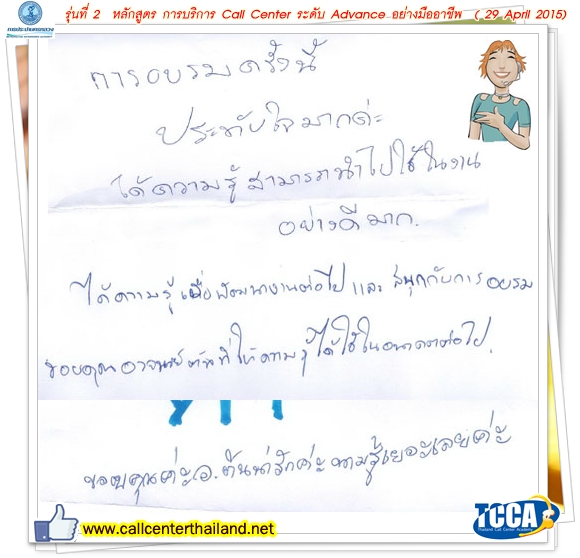 การประปานครหลวง
รุ่นที่ 2 หลักสูตร การบริการ Call Center ระดับ Advance อย่างมืออาชีพ ( 29 April 2015)
การอบรมครั้งนี้
ประทับใจมากค่ะ
ได้ความรู้ สามารถนำไปใช้ในงาน
อย่างดีมาก.
ได้ความรู้ เพื่อพัฒนางานต่อไป และ สนุกกับการอบรม
ขอบคุณอาจารย์ต้นที่ให้ความรู้ได้ใช้ในอนาคตต่อไป.
ขอบคุณค่ะอ.ต้นน่ารักค่ะ ความรู้เยอะเลยค่ะ
www.callcenterthailand.net
TCCA
Thailand Call Center Academy